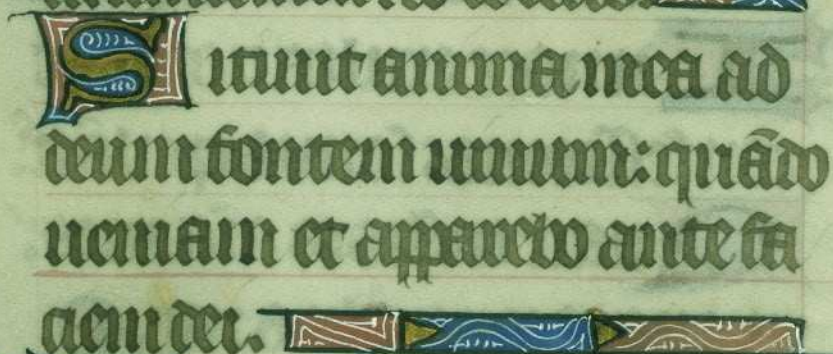 Sitiuit anima mea ad
deum fontem uiuum: quãdo
ueniam et apparebo ante fa
ciem dei.